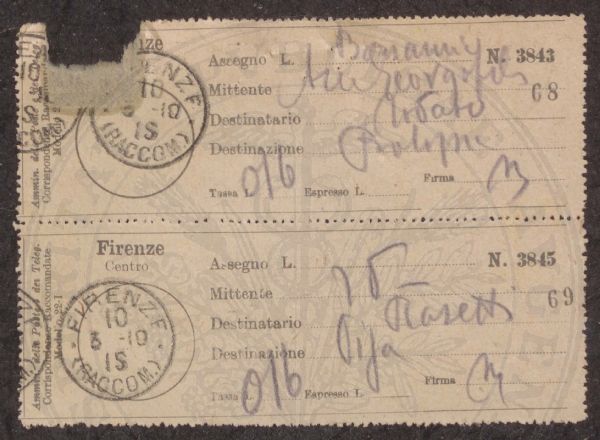 Firenze
Assegno L. Bonanni N. 3843
Mittente Acc Georgofili 68
Destinatario
Destinazione Bologna
Tassa L. 0/6 Espresso L. Firma
FIRENZE
10
3 -10
15
(RACCOM.)
Ammin. delle Poste e dei Teleg.
Corrispondenze Raccomandate
Firenze
Centro
Assegno L. N. 3845
Mittente 69
Destinatario Rosetti
Destinazione Pisa
Tassa L. 0/6 Espresso L. Firma
FIRENZE
10
3 -10
15
(RACCOM.)
Ammin. delle Poste e dei Teleg.
Corrispondenze Raccomandate
Modello 22-I